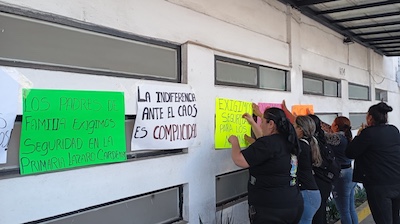 LOS PADRES DE
FAMILIA EXIGIMOS
SEGURIDAD EN LA
PRIMARIA LÁZARO CÁRDENAS
LA INDIFERENCIA
ANTE EL CAOS
ES COMPLICIDAD
EXIGIMOS
SEGURIDAD
PARA